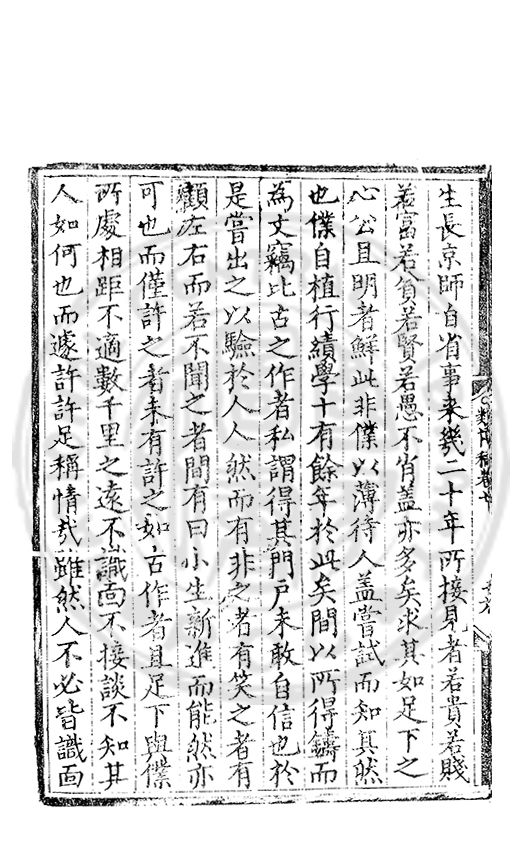 生長京師自省事来幾二十年所接見者若貴若賤
若富若貧若賢若愚不肖蓋亦多矣求其如足下之
心公且明者鮮此非僕以薄待人蓋嘗試而知其然
也僕自植行績學十有餘年於此矣間以所得鑄而
為文竊比古之作者私謂得其門戸未敢自信也於
是嘗出之以驗於人人然而有非之者有笑之者有
顧左右而若不聞之者間有曰小生新進而能然亦
可也而僅許之者未有許之如古作者且足下與僕
所處相距不適數千里之遠不識面不接談不知其
人如何也而遽許許足稱情哉雖然人不必皆識面